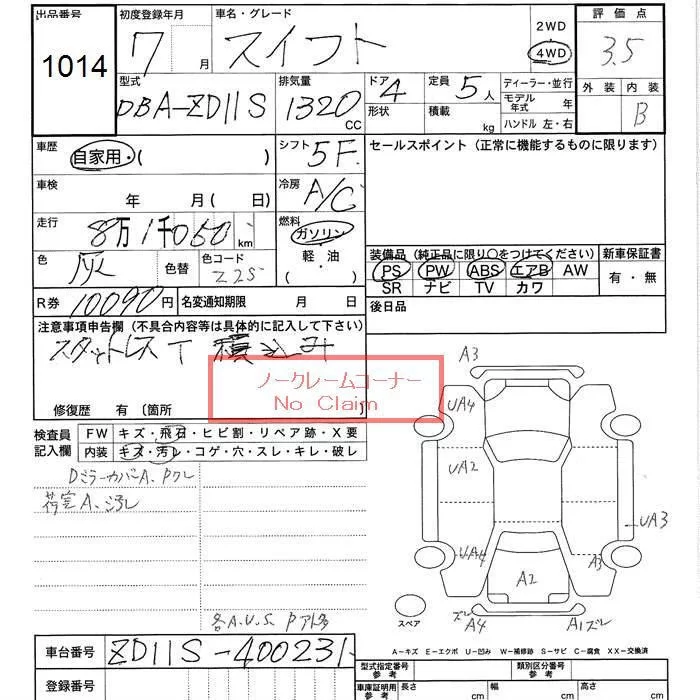 出品番号 初度登録年月 車名・グレード 2WD 評価点
1014 7月 スイフト 4WD 3.5
型式 排気量 ドア 4 定員 5人 ディーラー・並行 外装 内装
DBA-ZD11S 1320CC 形状 積載 kg モデル年式 年 B
ハンドル 左・右
車歴 自家用・( ) シフト 5F セールスポイント(正常に機能するものに限ります)
車検 年 月(日) 冷房 A/C
走行 8万1千050km 燃料 ガソリン
軽・油
色 灰 色替 色コード Z2S
装備品(純正品に限り○をつけてください) 新車保証書
PS PW ABS エアB AW 有・無
SR ナビ TV カワ
R券 10090円 名変通知期限 月 日 後日品
注意事項申告欄(不具合内容等は具体的に記入して下さい)
スタットレスT 積込み
ノークレームコーナー
No Claim
修復歴 有(箇所 )
検査員 FW キズ・飛石・ヒビ割・リペア跡・X要
記入欄 内装 キズ・汚レ・コゲ・穴・スレ・キレ・破レ
DミラーカバーA、Pワレ
荷室A、汚レ
各A.U.S.
A3
UA4
UA2
UA3
UA4
A3
A2
ズレ A4
A1ズレ
スペア
A-キズ E-エクボ U-凹み W-補修跡 S-サビ C-腐食 XX-交換済
車台番号 ZD11S-400231
型式指定番号 参考 類別区分番号 参考
登録番号 車庫証明用 参考 長さ cm 幅 cm 高さ cm